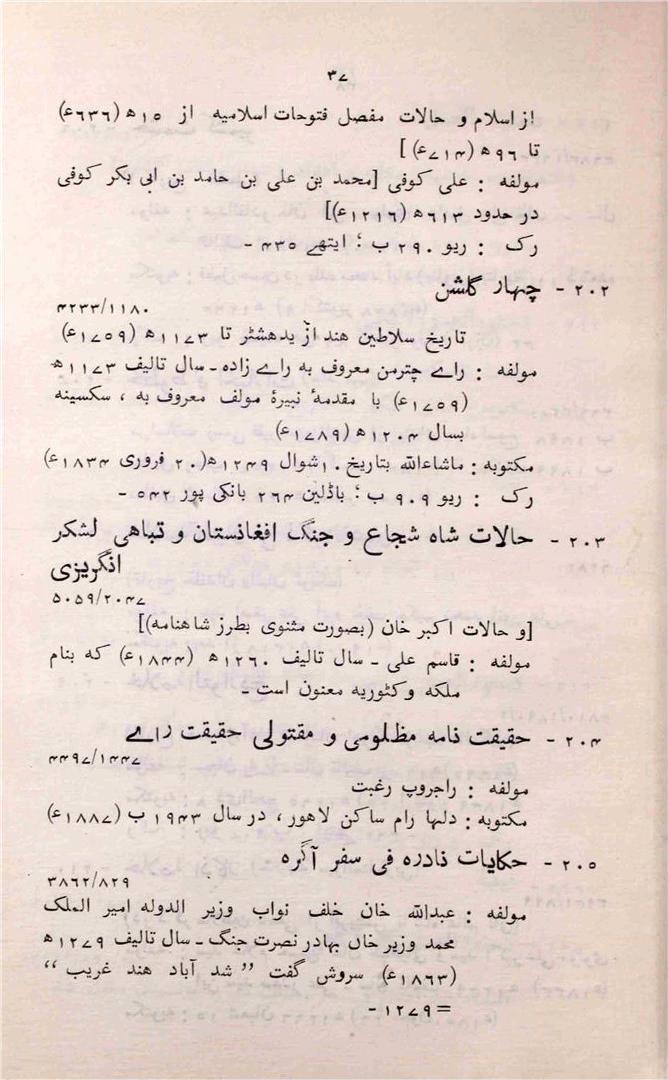 ۳۷
از اسلام و حالات مفصل فتوحات اسلامیه از ۱۵ھ (۶۳۶ع)
تا ۹۶ھ (۷۱۴ع)]
مولفه : علی کوفی [محمد بن علی بن حامد بن ابی بکر کوفی
در حدود ۶۱۳ھ (۱۲۱۶ع)]
رک : ریو ۲۹۰ ب ؛ ایتھے ۴۳۵ -
۲۰۲ - چہار گلشن
۴۲۳۳/۱۱۸۰
تاریخ سلاطین هند از یدهشٹر تا ۱۱۷۳ھ (۱۷۵۹ع)
مولفه : راے چترمن معروف به راے زاده - سال تالیف ۱۱۷۳ھ
(۱۷۵۹ع) با مقدمهٔ نبیرهٔ مولف معروف به ، سکسینه
بسال ۱۲۰۴ھ (۱۷۸۹ع)
مکتوبه : ماشاءالله بتاریخ ۱۰ شوال ۱۲۴۹ھ (۲۰ فروری ۱۸۳۴ع)
رک : ریو ۹۰۹ ب ؛ باڈلین ۲۶۴ بانکی پور ۵۴۲ -
۲۰۳ - حالات شاه شجاع و جنگ افغانستان و تباهی لشکر
انگریزی
۵۰۵۹/۲۰۴۷
[و حالات اکبر خان (بصورت مثنوی بطرز شاهنامه)]
مولفه : قاسم علی - سال تالیف ۱۲۶۰ھ (۱۸۴۴ع) که بنام
ملکه وکٹوریه معنون است -
۲۰۴ - حقیقت نامه مظلومی و مقتولی حقیقت راے
۴۴۹۷/۱۴۴۷
مولفه : راجروپ رغبت
مکتوبه : دلہا رام ساکن لاهور ، در سال ۱۹۴۳ ب (۱۸۸۷ع)
۲۰۵ - حکایات نادره فی سفر آگره
۳۸۶۲/۸۲۹
مولفه : عبدالله خان خلف نواب وزیر الدوله امیر الملک
محمد وزیر خاں بہادر نصرت جنگ - سال تالیف ۱۲۷۹ھ
(۱۸۶۳ع) سروش گفت ”شد آباد هند غریب“
= ۱۲۷۹ -